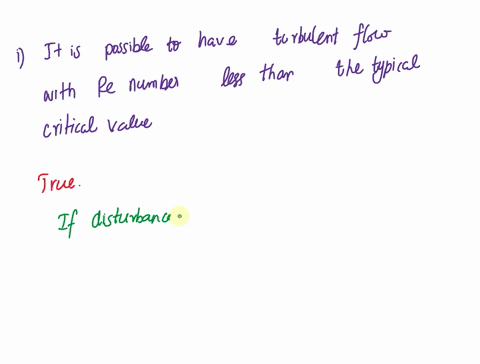 1) It is possible to have turbulent flow
with Re number less than the typical
critical value
True.
If disturbance